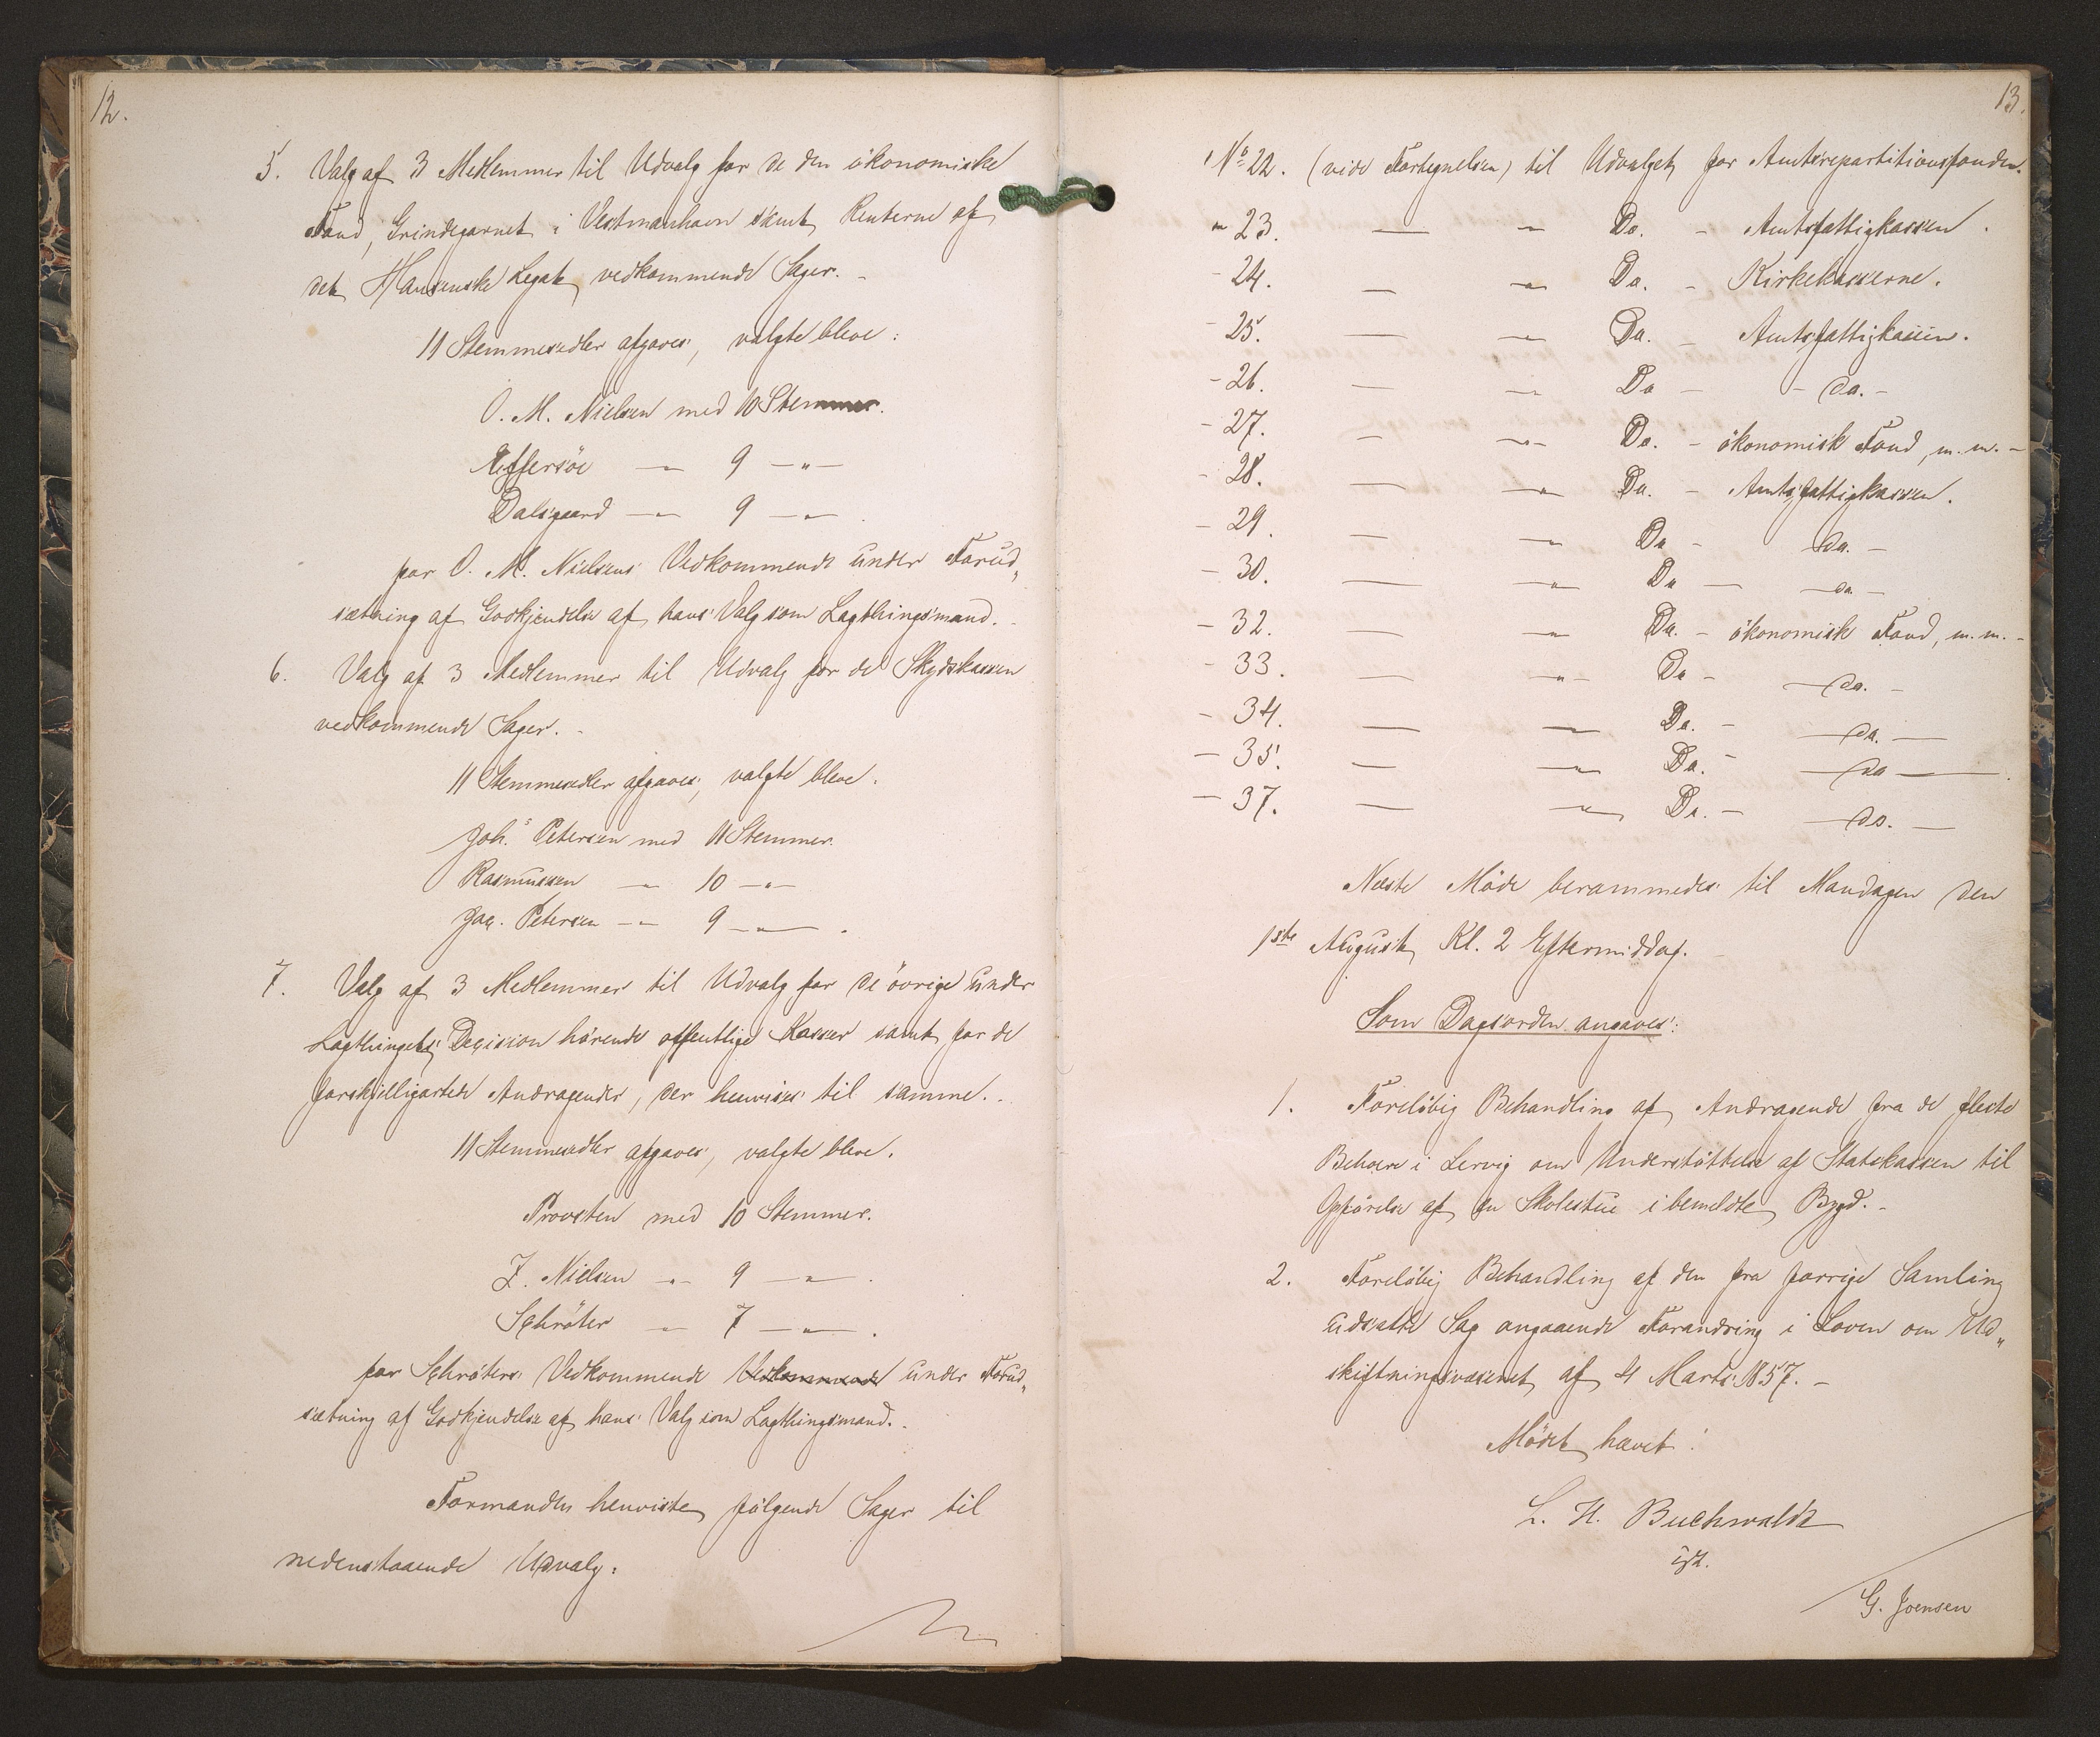 12.
5. Valg af 3 Medlemmer til Udvalg for de den ökonomiske
Fond, Grindegarnet i Vestmanhavn samt Renterne af
det Hansenske Legat vedkommende Sager. -
11 Stemmesedler afgaves, valgte bleve:
O. M. Nielsen med 10 Stemmer.
Effersöe — " 9 — " —
Dalsgaard — " 9 — " .
for O. M. Nielsens Vedkommende under Forud„
sætning af Godkjendelse af hans Valg som Lagthingsmand. -
6. Valg af 3 Medlemmer til Udvalg for de Skydskassen
vedkommende Sager. -
11 Stemmesedler afgaves, valgte bleve.
Joh.s Petersen med 11 Stemmer.
Rasmussen — " 10 — " —
Jac. Petersen — " 9 — " — .
7. Valg af 3 Medlemmer til Udvalg for de övrige under
Lagthingets Decision hörende offentlige Kasser samt for de
forskjelligartede Andragender, der henvises til samme. -
11 Stemmesedler afgaves, valgte bleve.
Provsten med 10 Stemmer.
Z. Nielsen — " 9 — " — .
Schröter — " 7 — " — .
for Schröters Vedkommende Vedkommende under Forud„
sætning af Godkjendelse af hans Valg som Lagthingsmand. -
Formanden henviste fölgende Sager til
nedenstaaende Udvalg:
13.
No 22. (vide Fortegnelsen) til Udvalget for Amtsrepartitionsfonden.
" 23. — " Do. - Amtsfattigkassen.
- 24. — " Do. - Kirkekasserne.
- 25. — " Do. - Amtsfattigkassen.
- 26. — " Do - - do. -
- 27. — " Do. - ökonomisk Fond, m. m. -
- 28. — " Do. - Amtsfattigkassen.
- 29. — " Do - do. -
- 30. — " Do — do. -
- 32. — " Do. - ökonomisk Fond, m. m. -
- 33. — " Do - — do. -
- 34. — " Do. - — do. —
- 35. — " Do. - — do —
- 37. — " Do. - — do. —
Næste Möde berammedes til Mandagen den
1ste August Kl. 2 Eftermiddag. -
Som Dagsorden angaves:
1. Forelöbig Behandling af Andragende fra de fleste
Beboere i Lervig om Understöttelse af Statskassen til
Opförelse af en Skolestue i bemeldte Bygd. -
2. Forelöbig Behandling af den fra forrige Samling
udsatte Sag angaaende Forandring i Loven om Ud„
skiftningsvæsenet af 4 Marts 1857. -
Mödet hævet!
L. H. Buchwaldt
G. Joensen